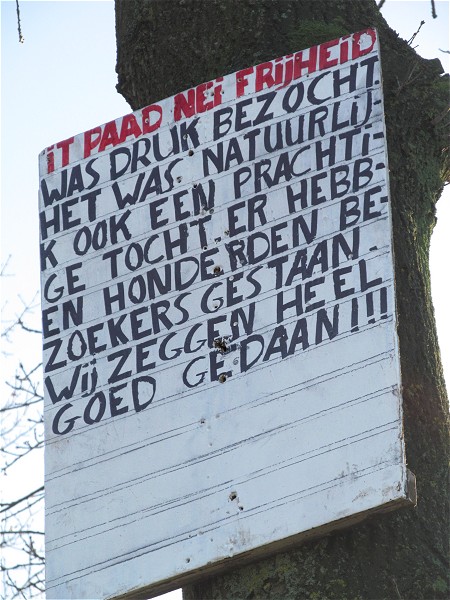 iT PAAD NEi FRIJHEiD
WAS DRUK BEZOCHT
HET WAS NATUURLIJ-
K OOK EEN PRACHTi-
GE TOCHT ER HEBB-
EN HONDERDEN BE-
ZOEKERS GESTAAN.
WIJ ZEGGEN HEEL
GOED GEDAAN!!!